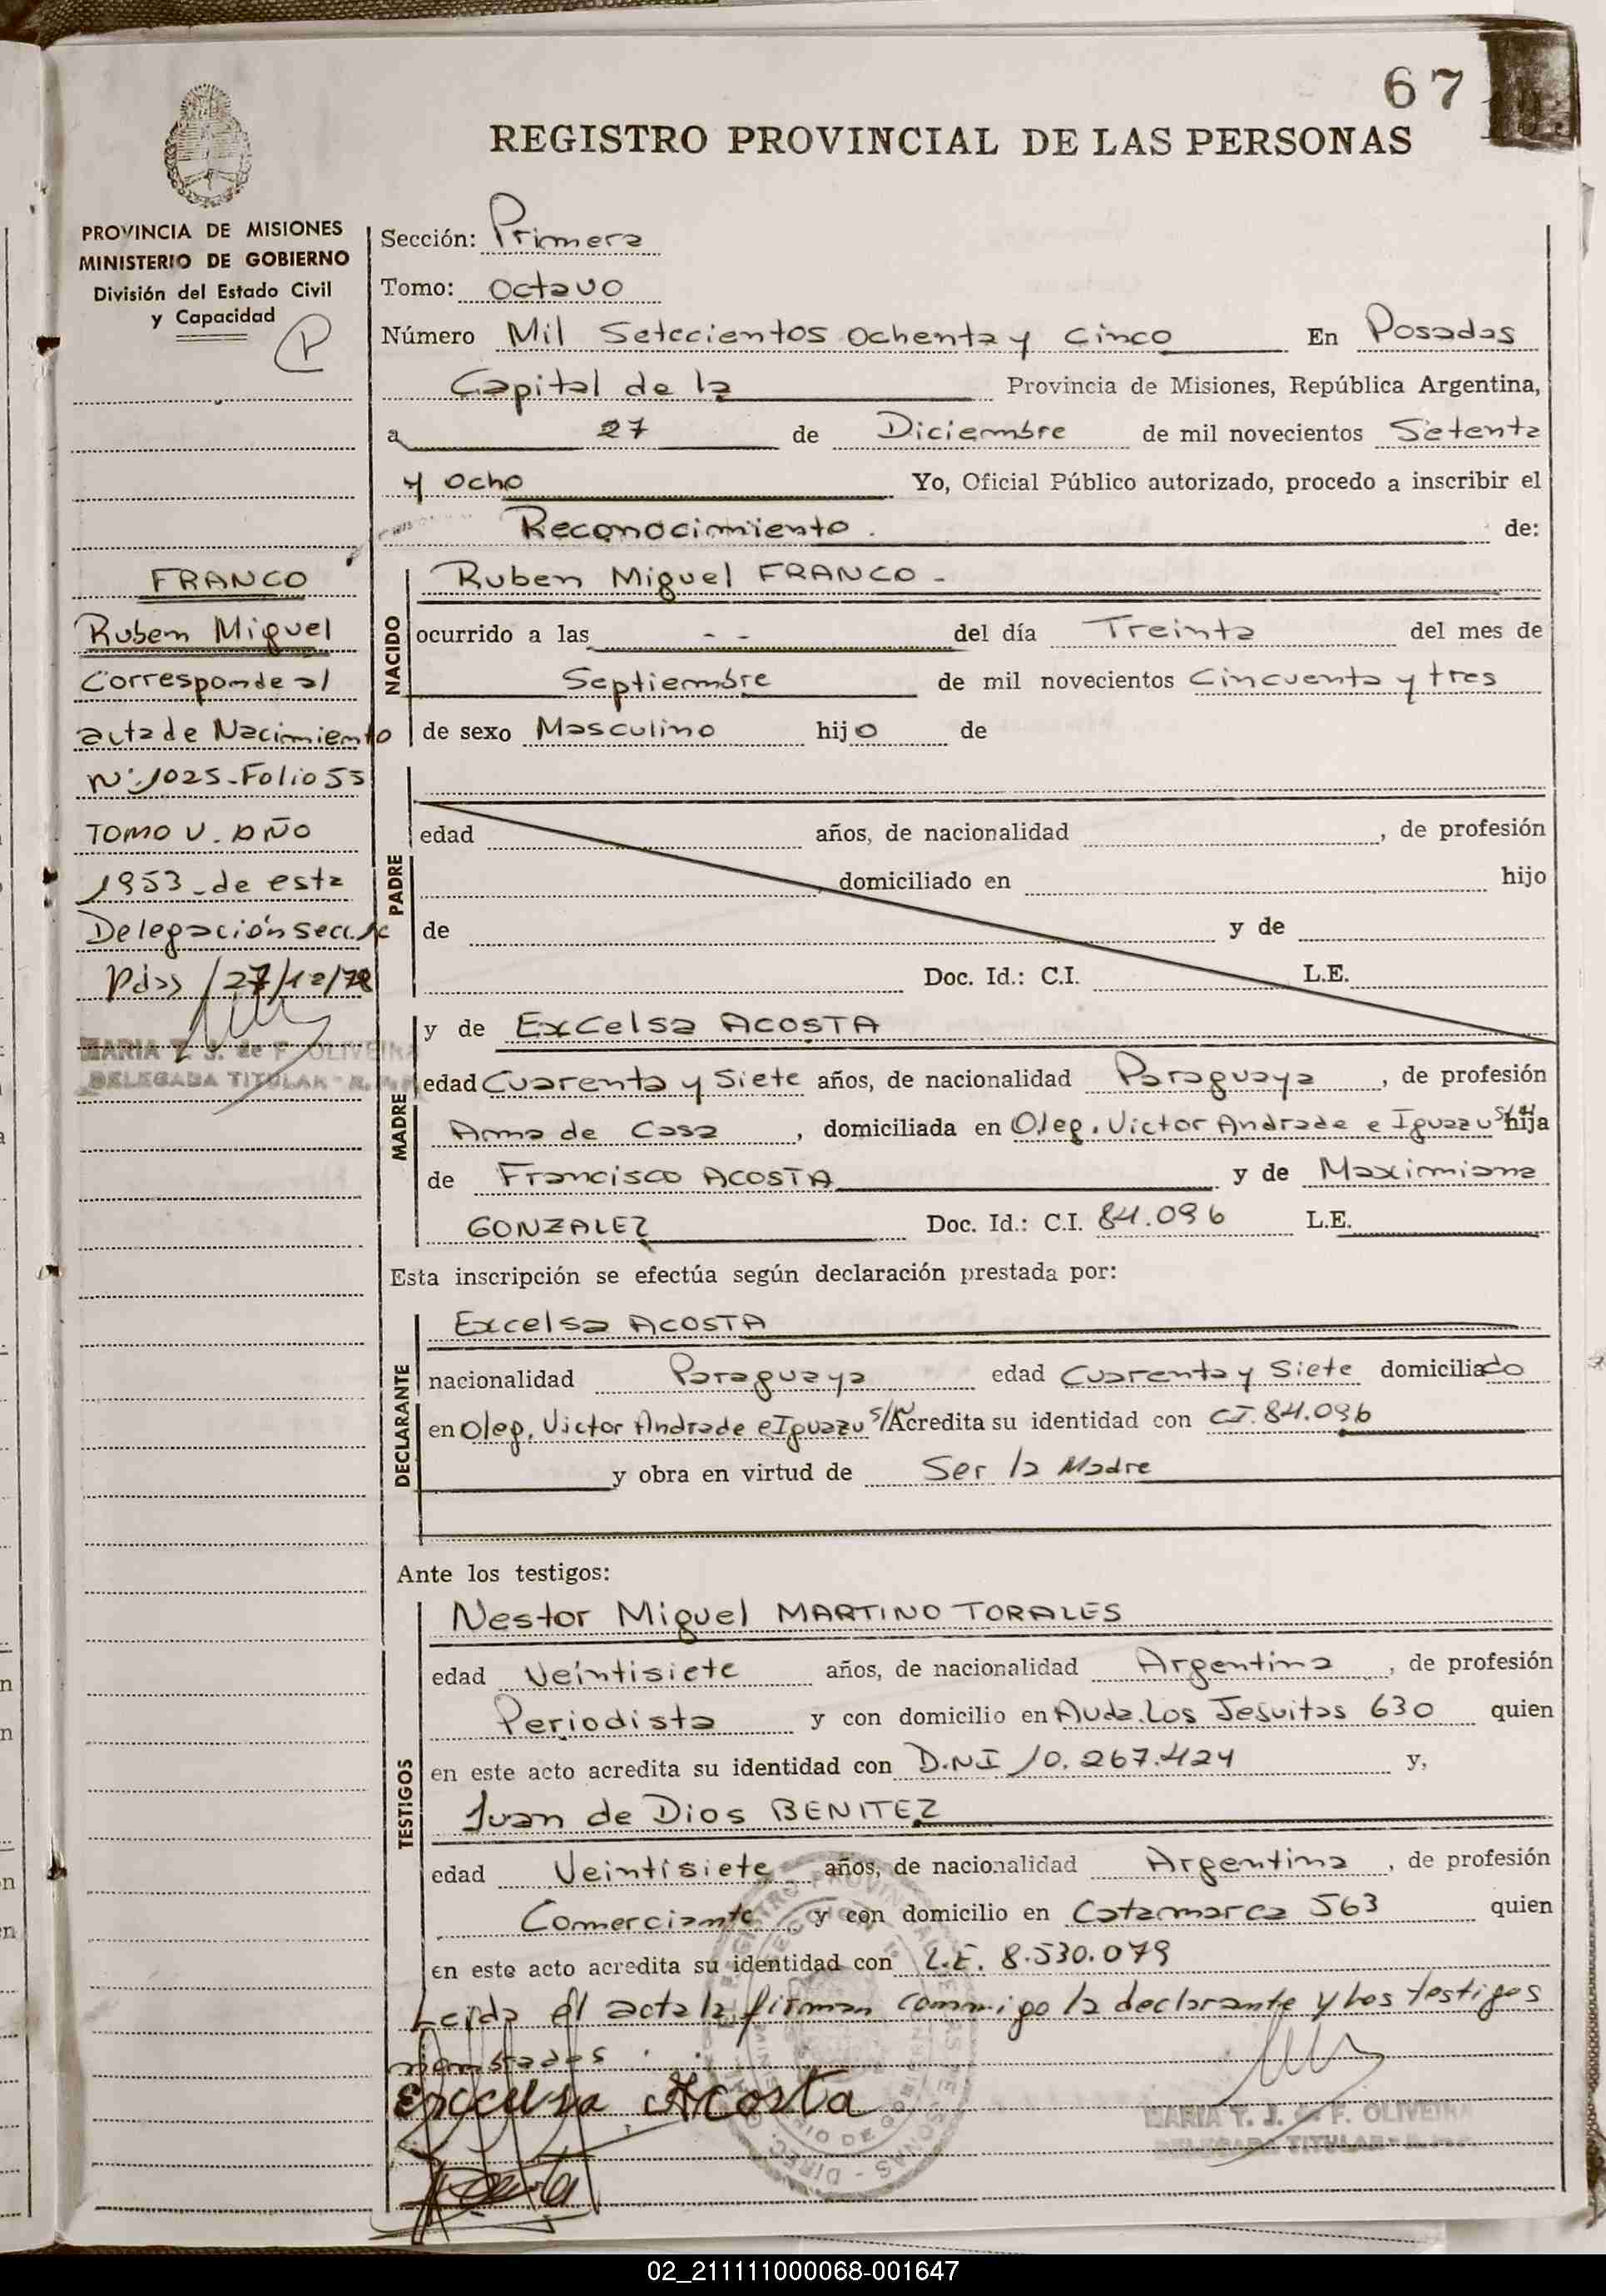 67
REGISTRO PROVINCIAL DE LAS PERSONAS
PROVINCIA DE MISIONES
MINISTERIO DE GOBIERNO
División del Estado Civil
y Capacidad
P
FRANCO
Ruben Miguel
Corresponde al
acta de Nacimiento
Nº 1025-Folio 55
TOMO V. AÑO
1953-de esta
Delegación secc. 1º
Pdas /27/12/78
MARIA T. J. de F. OLIVEIRA
DELEGADA TITULAR
Sección: Primera
Tomo: Octavo
Número Mil Setecientos Ochenta y Cinco En Posadas
Capital de la Provincia de Misiones, República Argentina,
a 27 de Diciembre de mil novecientos Setenta
y Ocho Yo, Oficial Público autorizado, procedo a inscribir el
Reconocimiento. de:
NACIDO
Ruben Miguel FRANCO -
ocurrido a las - - del día Treinta del mes de
Septiembre de mil novecientos Cincuenta y tres
de sexo Masculino hijo de
PADRE
edad años, de nacionalidad , de profesión
, domiciliado en hijo
de y de
Doc. Id.: C.I. L.E.
MADRE
y de Excelsa ACOSTA
edad Cuarenta y Siete años, de nacionalidad Paraguaya , de profesión
Ama de Casa , domiciliada en Oleg. Victor Andrade e Iguazu s/n hija
de Francisco ACOSTA y de Maximiana
GONZALEZ Doc. Id.: C.I. 84.096 L.E.
Esta inscripción se efectúa según declaración prestada por:
DECLARANTE
Excelsa ACOSTA
nacionalidad Paraguaya edad Cuarenta y Siete domiciliado
en Oleg. Victor Andrade e Iguazu s/n Acredita su identidad con CI. 84.096
y obra en virtud de Ser la Madre
Ante los testigos:
TESTIGOS
Nestor Miguel MARTINO TORALES
edad Veintisiete años, de nacionalidad Argentina , de profesión
Periodista y con domicilio en Avda. Los Jesuitas 630 quien
en este acto acredita su identidad con D.N.I 10.267.424 y,
Juan de Dios BENITEZ
edad Veintisiete años, de nacionalidad Argentina , de profesión
Comerciante y con domicilio en Catamarca 563 quien
en este acto acredita su identidad con L.E. 8.530.079
Leida el acta la firman conmigo la declarante y los testigos
nombrados.
Excelsa Acosta
MARIA T. J. de F. OLIVEIRA
DELEGADA TITULAR
02_211111000068-001647